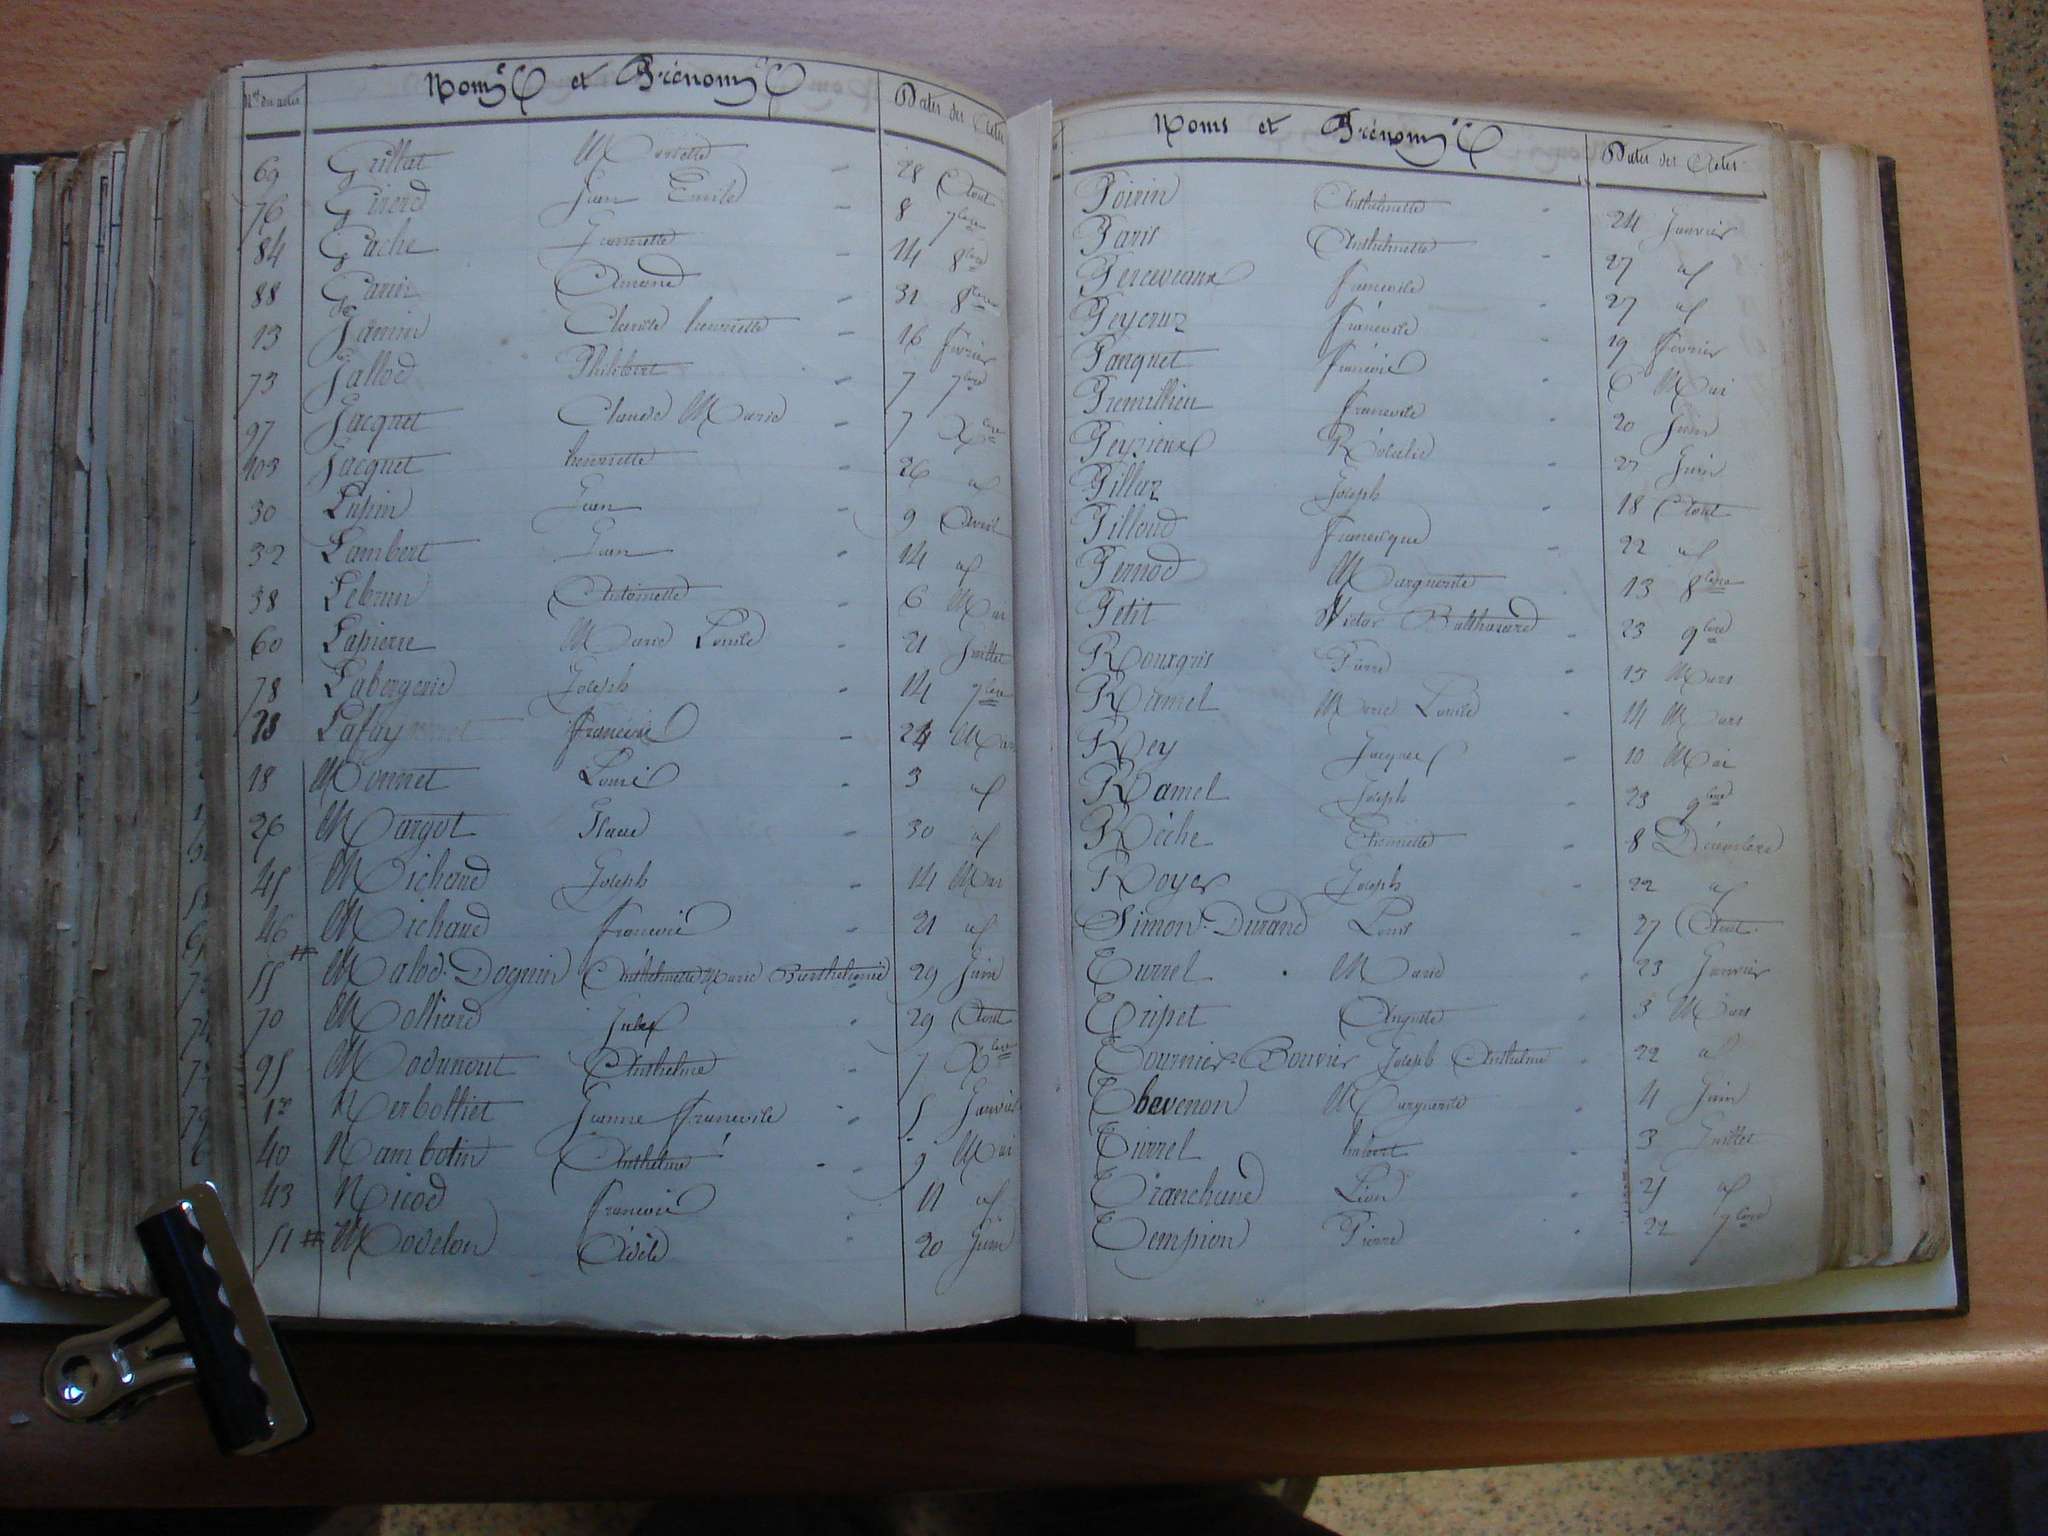 Nos des actes Noms et Prénoms Dates des Actes
69 Grillat Mariette 28 Aout
76 Girerd Jean Emile 8 7bre
84 Gache Jeannette 14 8bre
88 Garin Amand 31 8bre
13 Janin Claude henriette 16 février
73 Jallod Philibert 7 7bre
97 Jacquet Claude Marie 7 Xbre
103 Jacquet henriette 26 id
30 Lupin Jean 9 Avril
32 Lambert Jean 14 id
38 Lebrun Antoinette 6 Mai
60 Lapierre Marie Louise 21 Juillet
78 Labergerie Joseph 14 7bre
28 Lafay francois 24 Mars
18 Monnet Louis 3 id
26 Margot 30 id
45 Michaud Joseph 14 Mai
46 Michaud francois 21 id
55 # Malod-Dognin Anthelmette Marie Barthelemie 29 Juin
70 Molliard Jules 29 Aout
95 Modunout Anthelme 7 Xbre
1er Nerbolliet Jeanne francoise 5 Janvier
40 Nambotin Anthelme 9 Mai
43 Nicod francois 11 id
51 # Modelon 20 Juin
Noms et Prénoms Dates des Actes
Poirin Anthelmette 24 Janvier
Paris Anthelmette 27 id
Perceveaux francoise 27 id
Peycruz francoise 19 février
Panquet francois 6 Mai
Premillieu francoise 20 Juin
Peysieux Rosalie 27 Juin
Pillaz Joseph 18 Aout
Pilloud francisque 22 id
Pernod Marguerite 13 8bre
Petit Victor Balthazard 23 9bre
Rouxgris Pierre 13 Mars
Ramel Marie Louise 14 Mars
Rey Jacques 10 Mai
Ramel Joseph 23 9bre
Rèche Etiennette 8 Décembre
Royer Joseph 22 id
Simon-Durand Louis 27 Aout
Turrel Marie 23 Janvier
Tripet Auguste 3 Mars
Tournier-Bouvier Joseph Anthelme 22 id
Thevenon Marguerite 4 Juin
Tirrel 3 Juillet
Tranchand Léon 21 id
Tempion Pierre 22 7bre